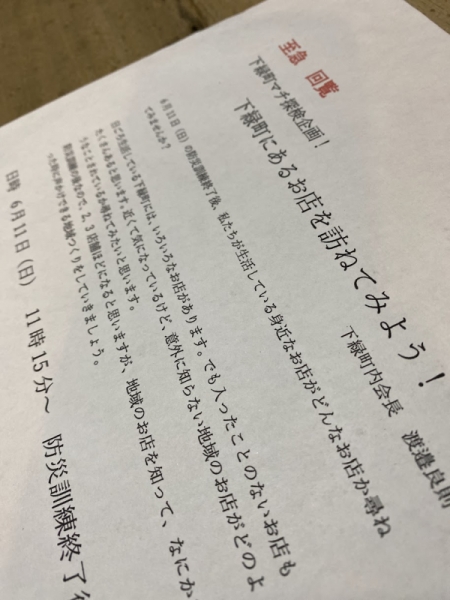 至急 回覧
下緑町マチ探検企画！
下緑町にあるお店を訪ねてみよう！
下緑町内会長 渡邉良則
6月11日（日）の防災訓練終了後、私たちが生活している身近なお店がどんなお店か尋ね
てみませんか？
日ごろ生活している下緑町には、いろいろなお店があります。でも入ったことのないお店も
たくさんあると思います。近くて気になっているけど、意外に知らない地域のお店がどのよ
うなことされているか尋ねてみたいと思います。
防災訓練の後なので、2、3店舗ほどになると思いますが、地域のお店を知って、なにか
った時に助けできる地域づくりをしていきましょう。
日時 6月11日（日） 11時15分～ 防災訓練終了後